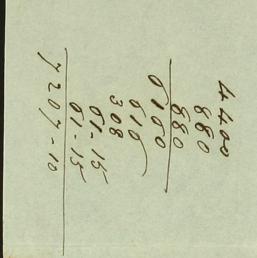 4400
880
880
6160
616
308
61-15
61-15
7207-10